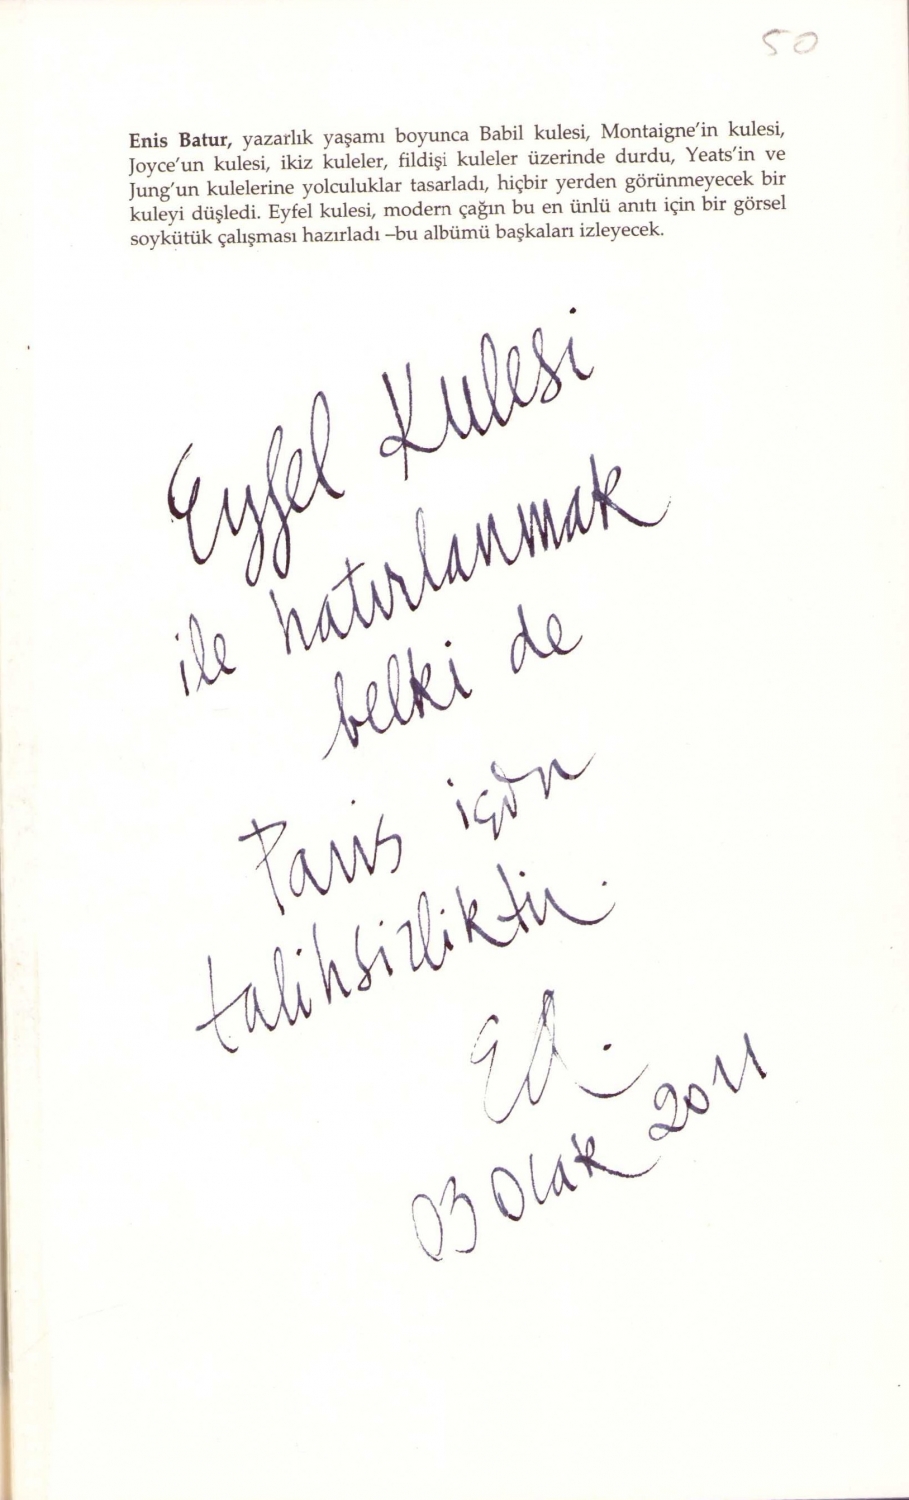 50
Enis Batur, yazarlık yaşamı boyunca Babil kulesi, Montaigne'in kulesi,
Joyce'un kulesi, ikiz kuleler, fildişi kuleler üzerinde durdu, Yeats'in ve
Jung'un kulelerine yolculuklar tasarladı, hiçbir yerden görünmeyecek bir
kuleyi düşledi. Eyfel kulesi, modern çağın bu en ünlü anıtı için bir görsel
soykütük çalışması hazırladı –bu albümü başkaları izleyecek.
Eyfel Kulesi
ile hatırlanmak
belki de
Paris için
talihsizliktir.
03 Ocak 2011